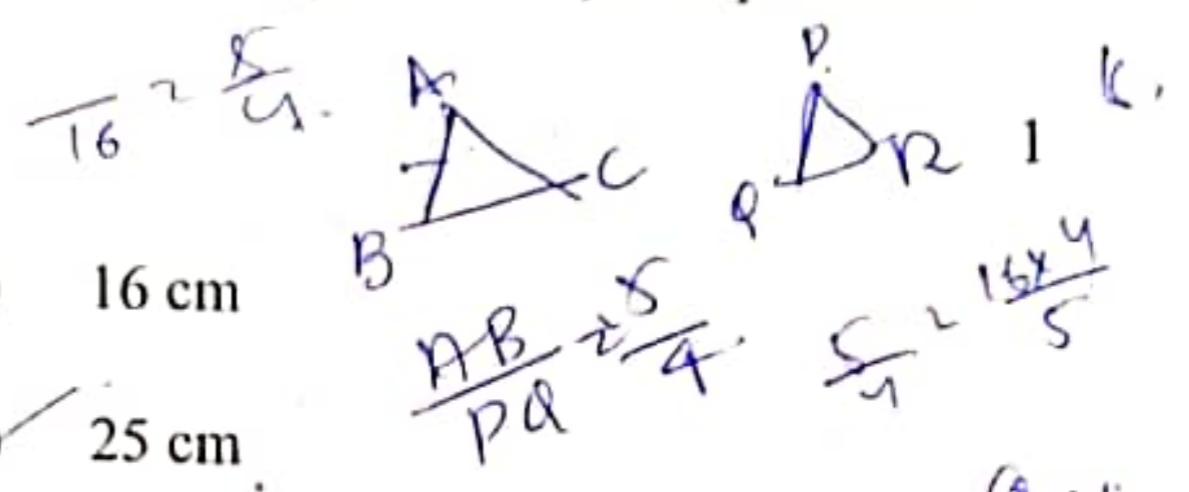 /16 = 5/4.
A
P.
K.
C
R
1
B
Q
16 cm
AB/PQ = 5/4.
5/4 = 16×4/5
25 cm